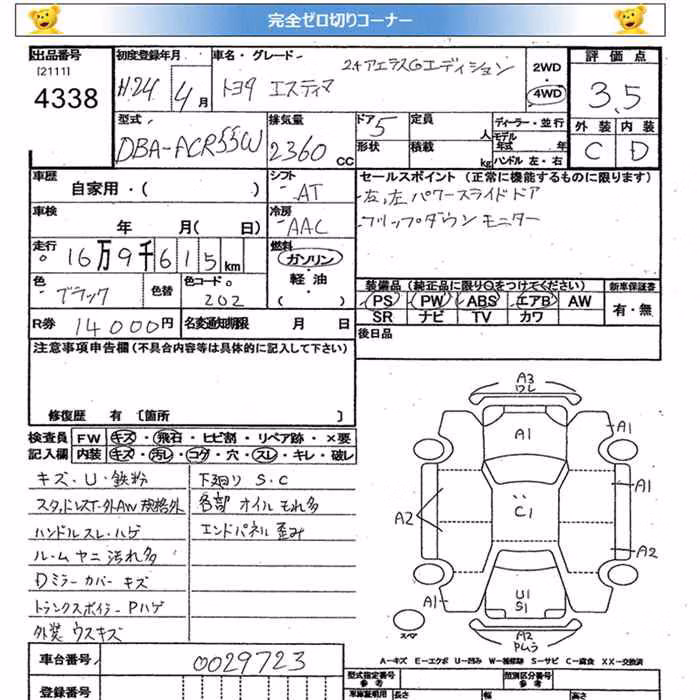 完全ゼロ切りコーナー
出品番号
[2111]
4338
初度登録年月
H24年 4月
車名・グレード
トヨタ エスティマ 2.4アエラスGエディション
2WD
・
4WD
評価点
3.5
外装 内装
C D
型式
DBA-ACR55W
排気量
2360 CC
ドア 5
形状
定員 人
積載 kg
ディーラー・並行
モデル年式 年
ハンドル 左・右
車歴
自家用・( )
シフト
AT
車検
年 月(日)
冷房
AAC
走行
16万9千615km
燃料
ガソリン
・
軽油
( )
色
ブラック
色替
色コードNo.
202
R券 14000円
名変通知期限 月 日
セールスポイント (正常に機能するものに限ります)
・左,左パワースライドドア
・フリップダウンモニター
装備品(純正品に限り○をつけてください)
新車保証書
PS PW ABS エアB AW
SR ナビ TV カワ
有・無
後日品
注意事項申告欄(不具合内容等は具体的に記入して下さい)
修復歴 有 [箇所 ]
検査員 FW キズ・飛石・ヒビ割・リペア跡・×要
記入欄 内装 キズ・汚レ・コゲ・穴・スレ・キレ・破レ
キズ・U・鉄粉
スタッドレスT・外AW規格外
ハンドルスレ・ハゲ
ルームヤニ汚れ多
Dミラーカバーキズ
トランクスポイラーPハゲ
外装ウスキズ
下廻りS・C
各部オイルもれ多
エンドパネル歪み
A3
ワレ
A1
A1
A1
C1
A2
A2
A1
U1
S1
スペア
A2
PムラA
A-キズ E-エクボ U-凹み W-補修跡 S-サビ C-腐食 XX-交換済
車台番号 0029723
登録番号
型式指定番号
参考
類別区分番号
参考
車庫証明用
長さ
幅
高さ